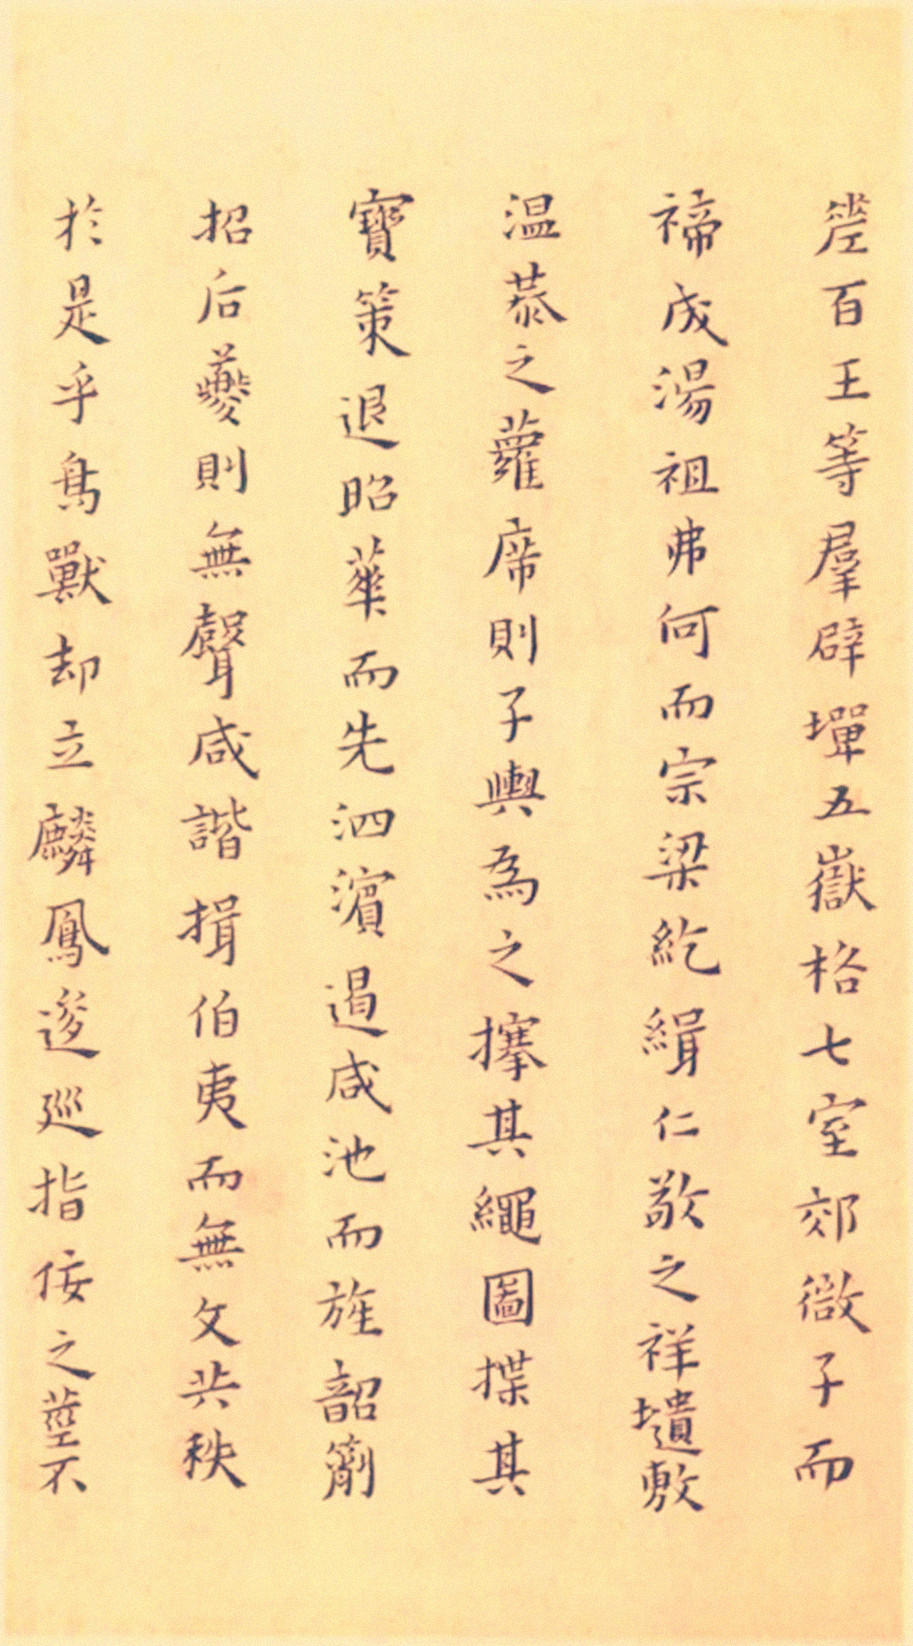 百王等羣辟墠五嶽格七室郊微子而
禘成湯祖弗何而宗梁紇緝仁敬之祥壝敷
温恭之蘿席則子輿為之搴其繩圖揲其
寶策退昭華而先泗濵遏咸池而旌韶箾
招后夔則無聲咸諧揖伯夷而無文共秩
於是乎鳥獸却立麟鳳逡巡指佞之莖不